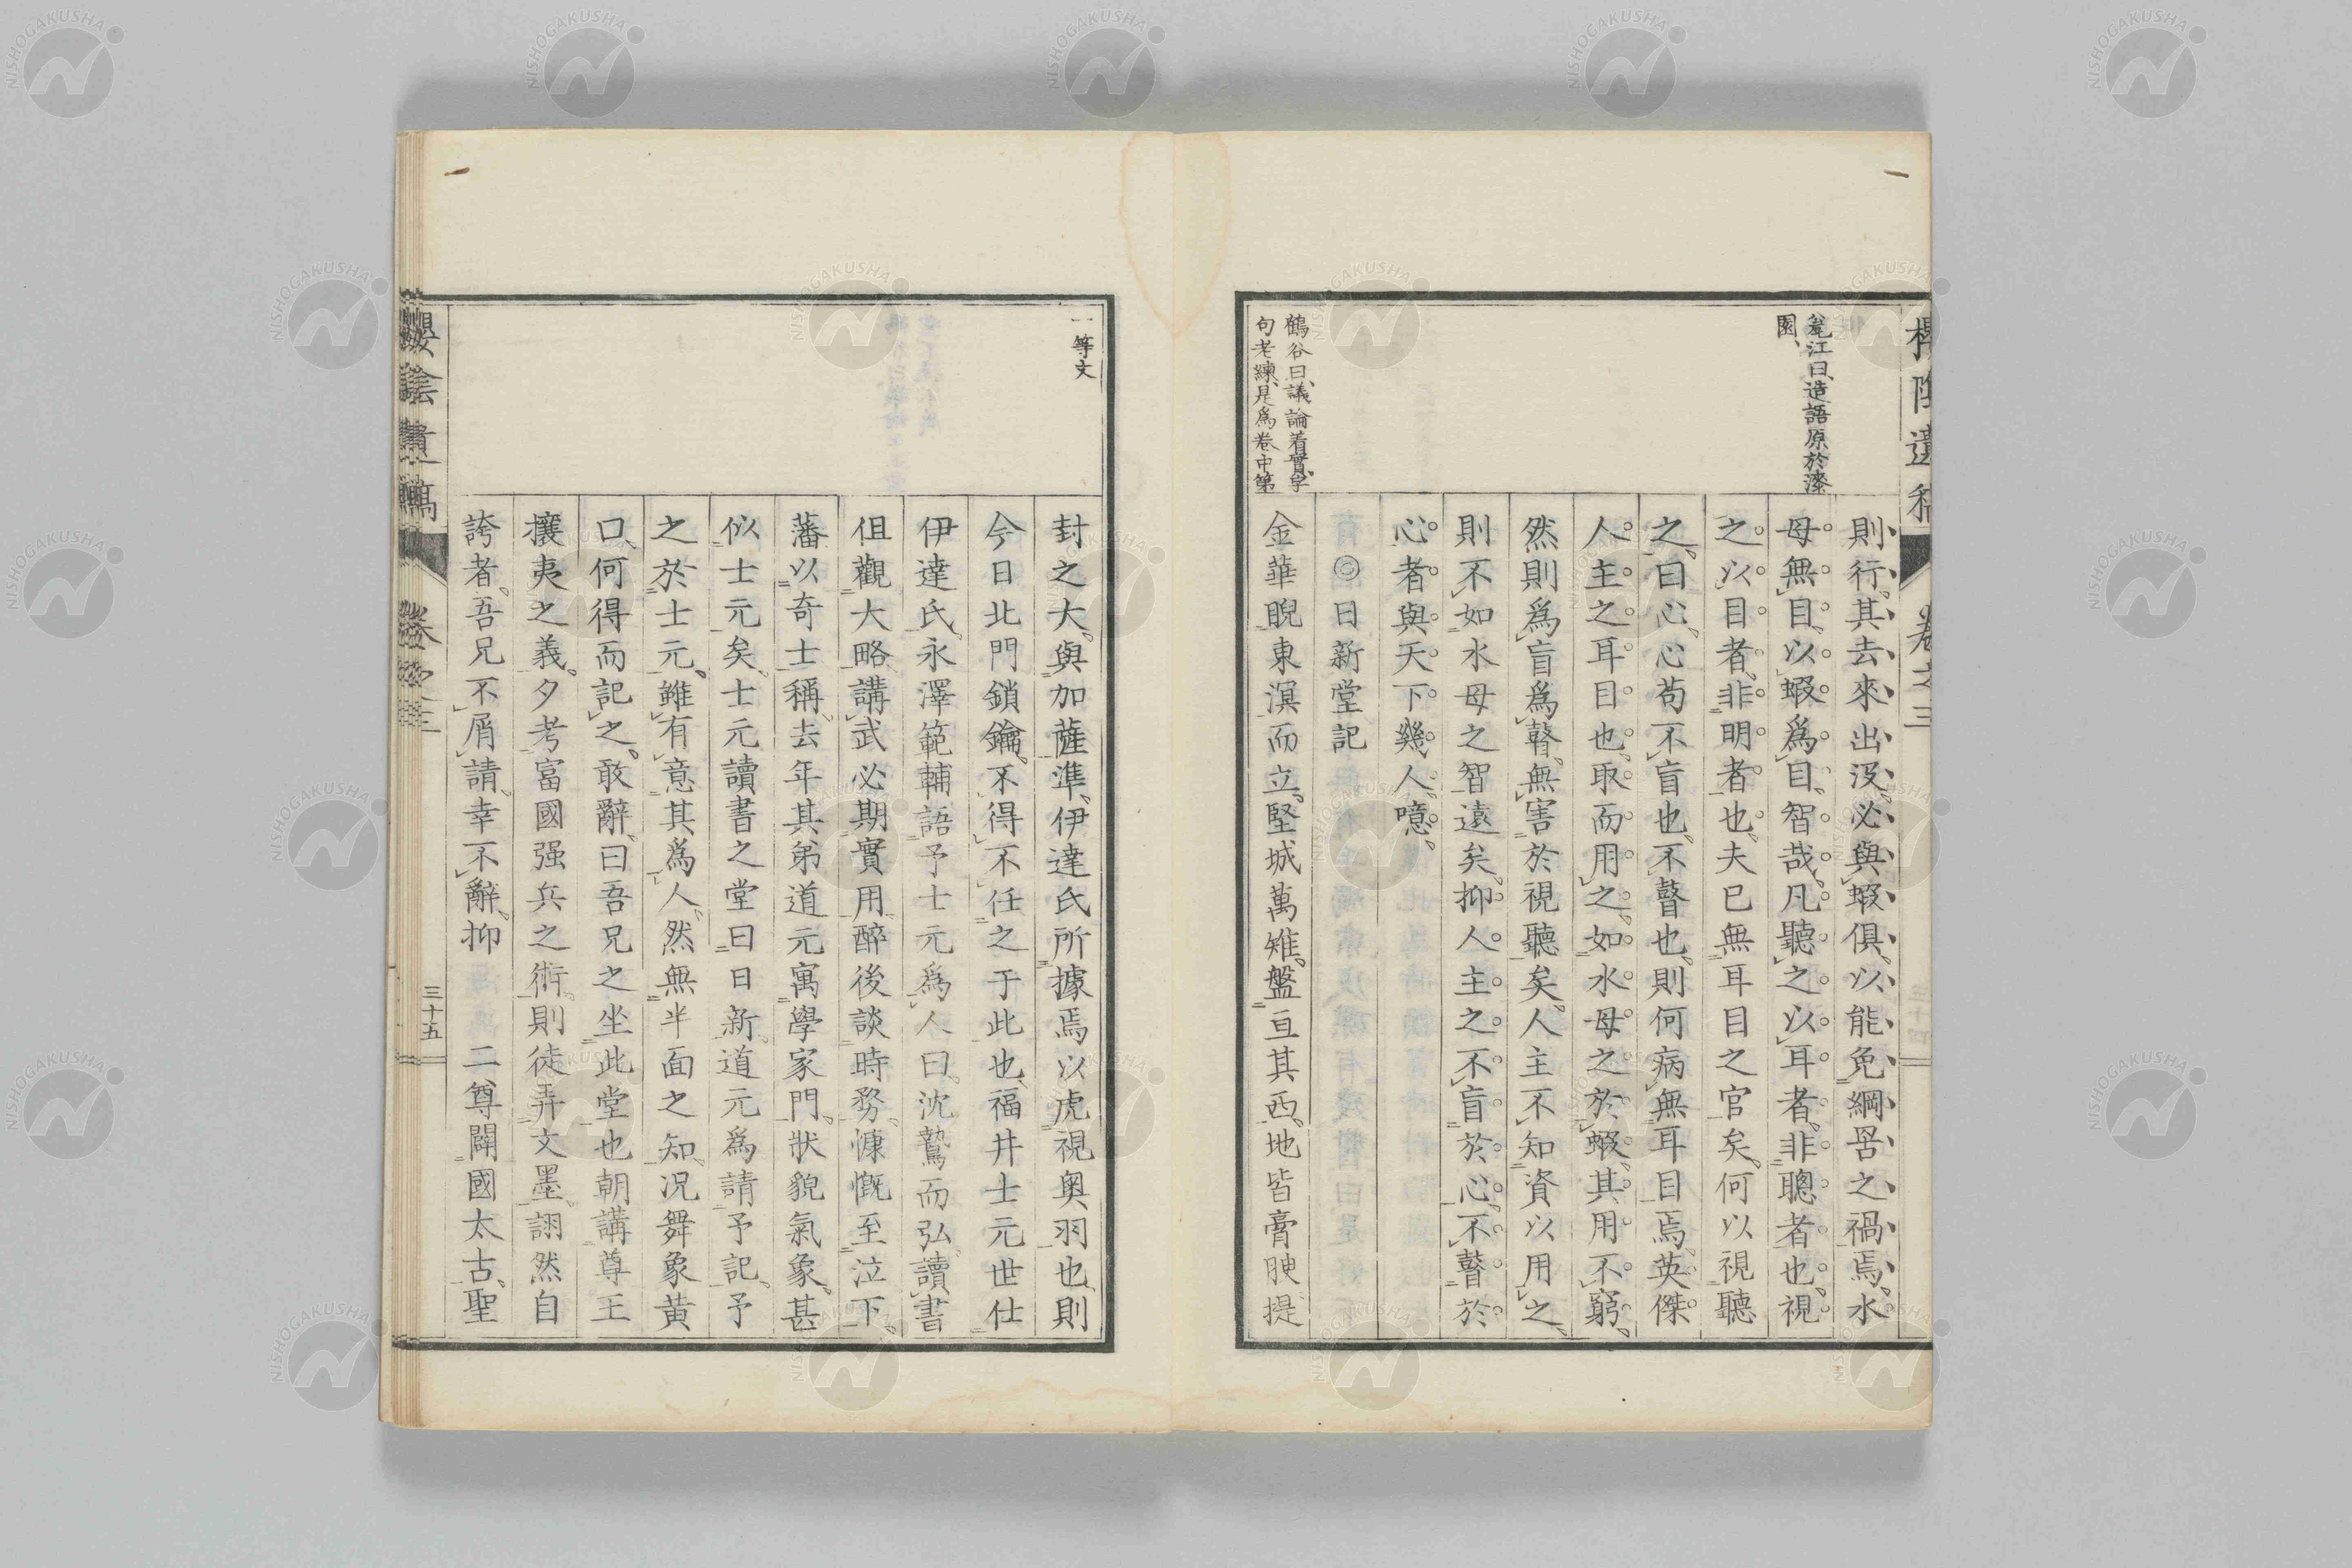 甕江曰、造語原於漆
園、
則行、其去來出沒、必與蝦俱、以能免綱罟之禍焉、水
母無目、以蝦爲目、智哉、凡聽之以耳者、非聰者也、視
之以目者、非明者也、夫已無耳目之官矣、何以視聽
之、曰心、心苟不盲也、不瞽也、則何病無耳目焉、英傑
人主之耳目也、取而用之、如水母之於蝦、其用不窮、
然則爲盲爲瞽、無害於視聽矣、人主不知資以用之、
則不如水母之智遠矣、抑人主之不盲於心、不瞽於
心者、與天下幾人、噫、
◎日新堂記
鶴谷曰、議論着實、字
句老練、是爲卷中第
金華睨東溟而立、堅城萬雉、盤亘其西、地皆膏腴、提
一等文
封之大、與加薩準、伊達氏所據焉、以虎視奥羽也、則
今日北門鎖鑰、不得不任之于此也、福井士元世仕
伊達氏、永澤範輔語予士元爲人曰、沈鷙而弘、讀書
但觀大略、講武必期實用、醉後談時務、慷慨至泣下、
藩以奇士稱、去年其弟道元寓學家門、狀貌氣象、甚
似士元矣、士元讀書之堂曰日新、道元爲請予記、予
之於士元、雖有意其爲人、然無半面之知、况舞象黄
口、何得而記之、敢辭、曰吾兄之坐此堂也、朝講尊王
攘夷之義、夕考富國强兵之術、則徒弄文墨、詡然自
誇者、吾兄不屑請、幸不辭、抑　二尊闢國太古、聖
卷之三
三十五